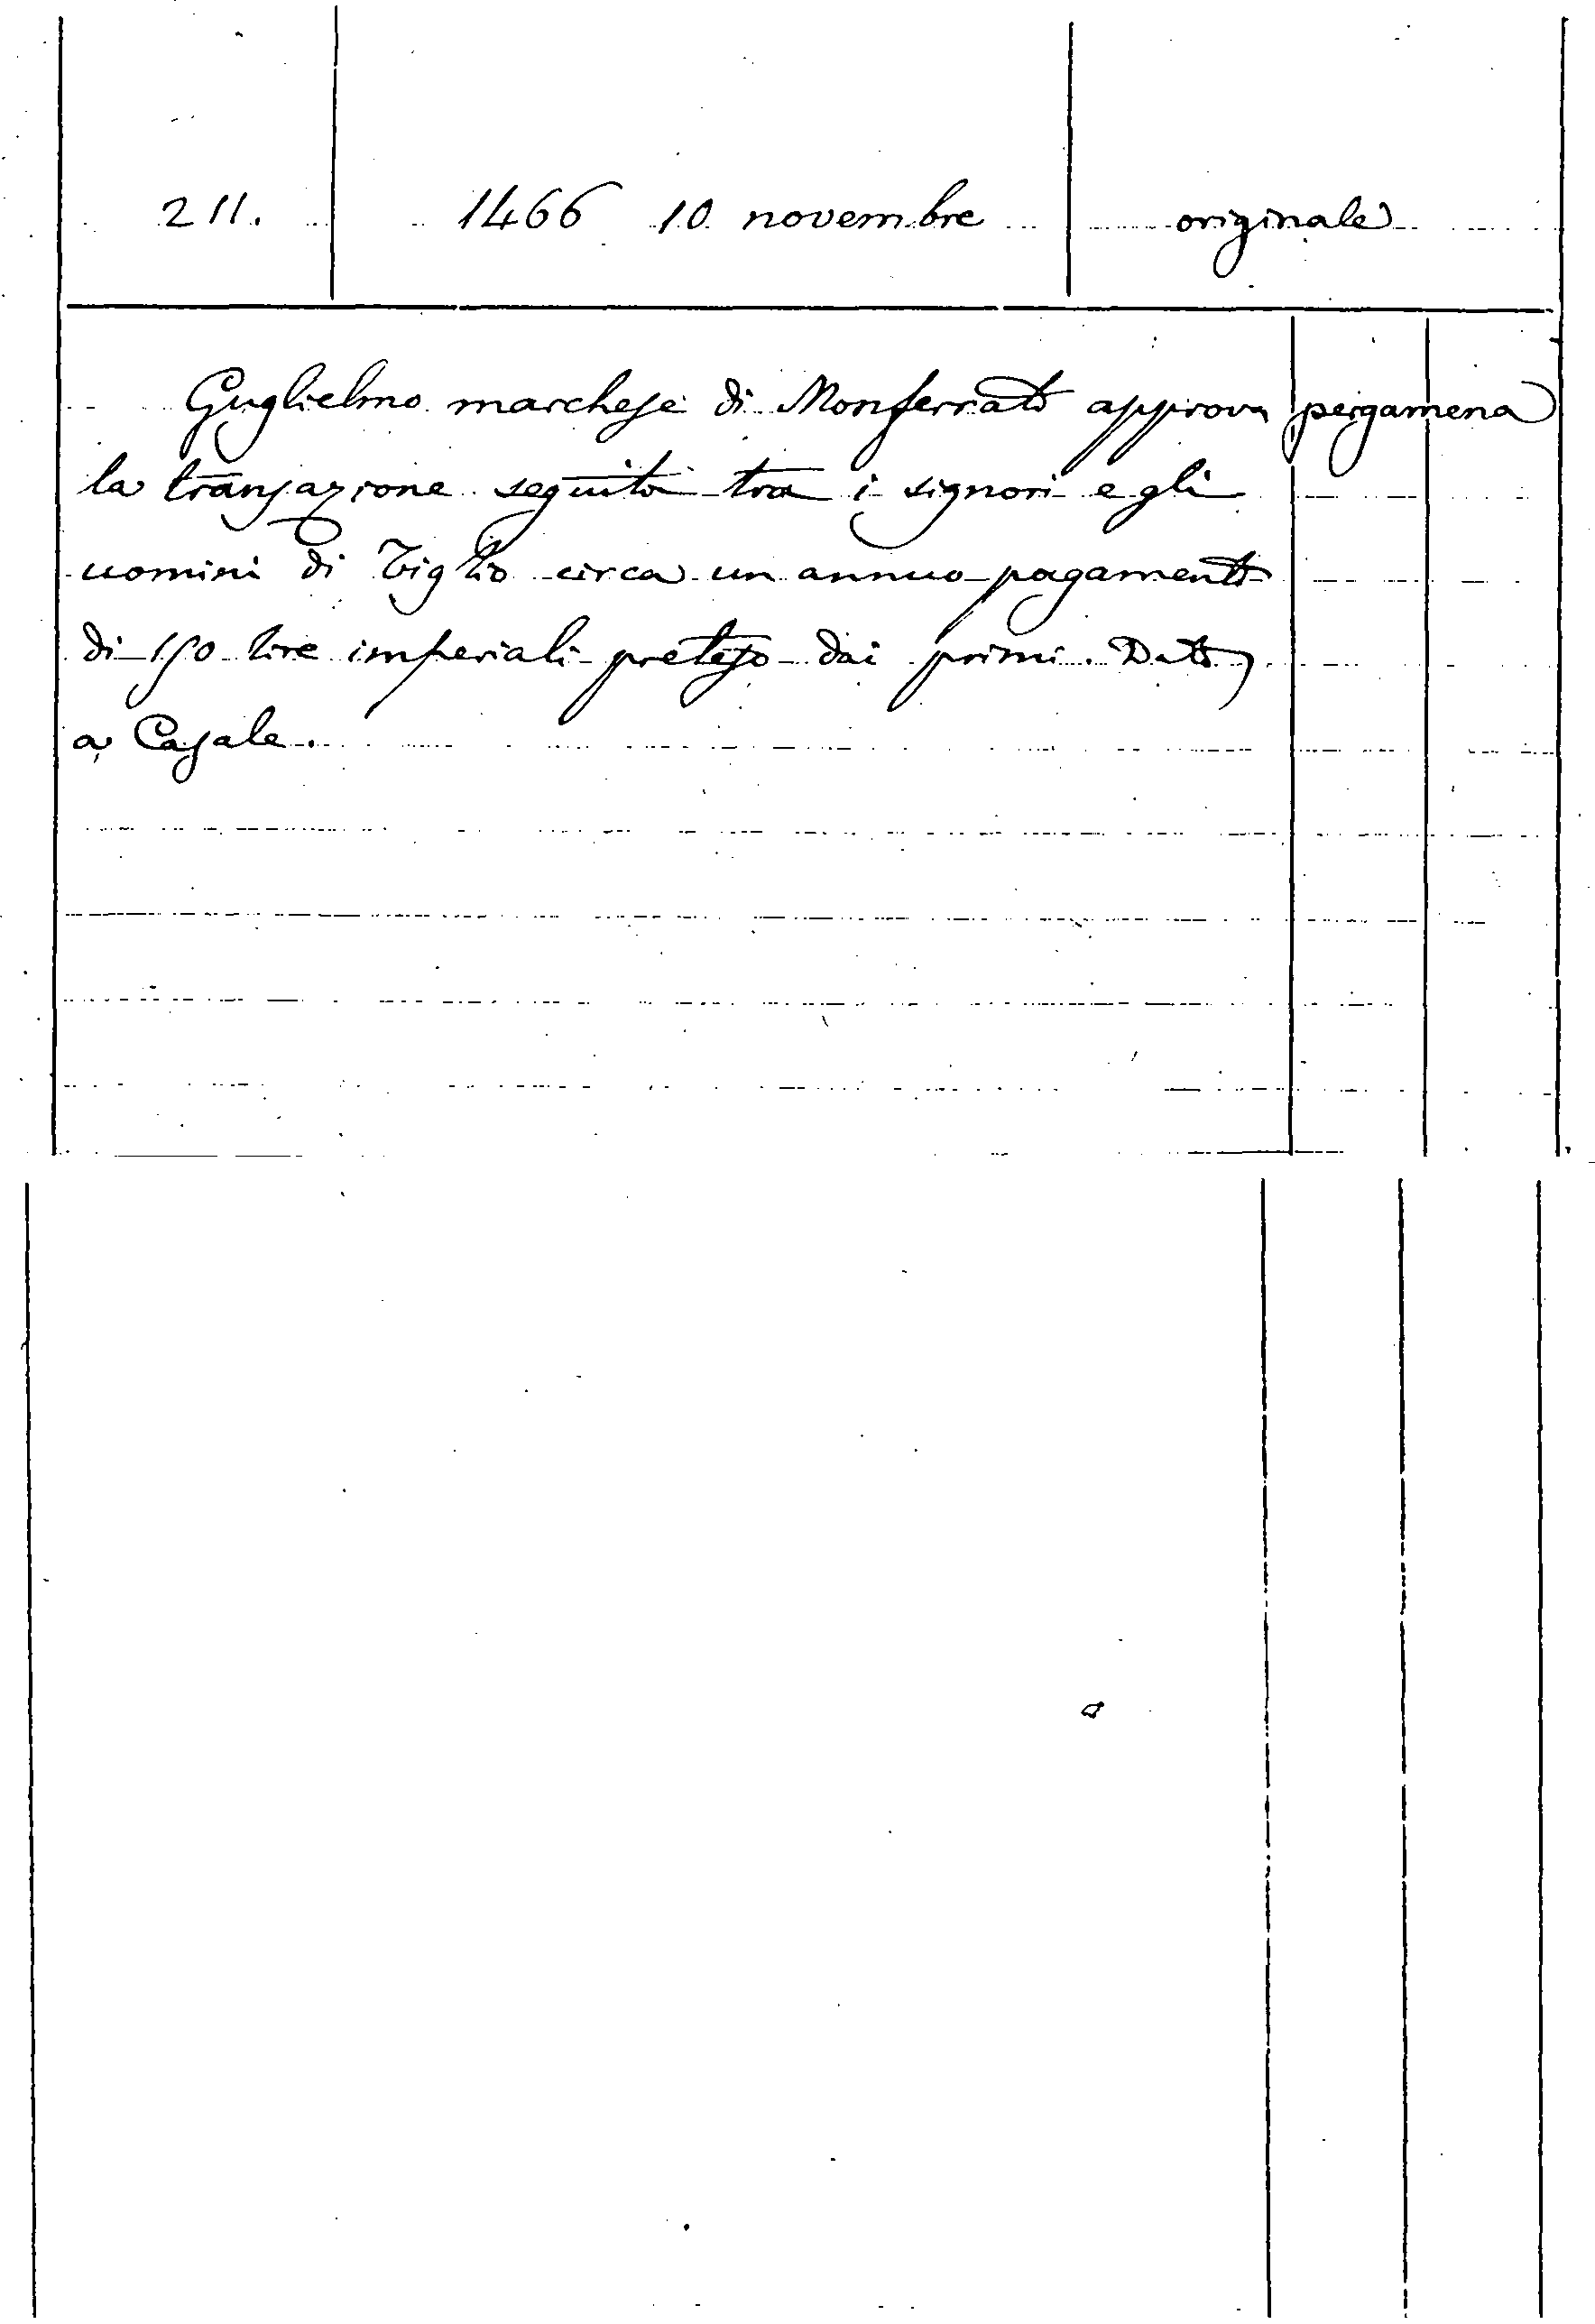 211. 1466 10 novembre originale
Guglielmo marchese di Monferrato approva pergamena
la transazione seguita tra i signori e gli
uomini di Tiglio circa un annuo pagamento
di 150 lire imperiali preteso dai primi. Dato
a Casale.